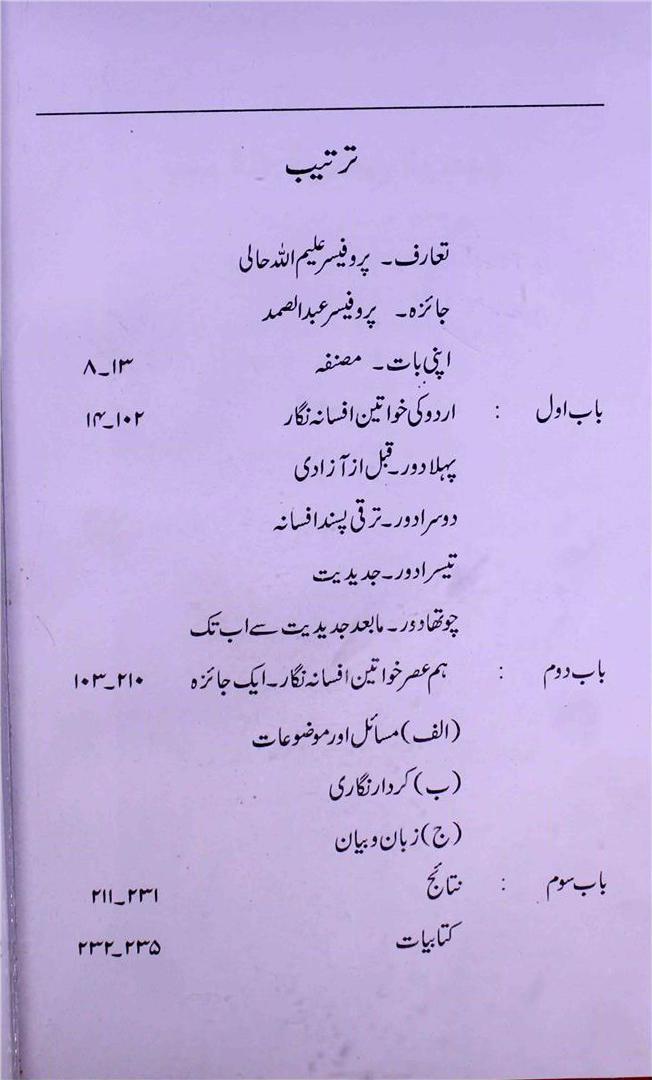 ترتیب
تعارف۔ پروفیسر علیم اللہ حالی
جائزہ۔ پروفیسر عبدالصمد
اپنی بات۔ مصنفہ ۸_۱۳
باب اول : اردو کی خواتین افسانہ نگار ۱۴_۱۰۲
پہلا دور۔ قبل از آزادی
دوسرا دور۔ ترقی پسند افسانہ
تیسرا دور۔ جدیدیت
چوتھا دور۔ مابعد جدیدیت سے اب تک
باب دوم : ہم عصر خواتین افسانہ نگار۔ ایک جائزہ ۱۰۳_۲۱۰
(الف) مسائل اور موضوعات
(ب) کردار نگاری
(ج) زبان و بیان
باب سوم : نتائج ۲۱۱_۲۳۱
کتابیات ۲۳۲_۲۳۵